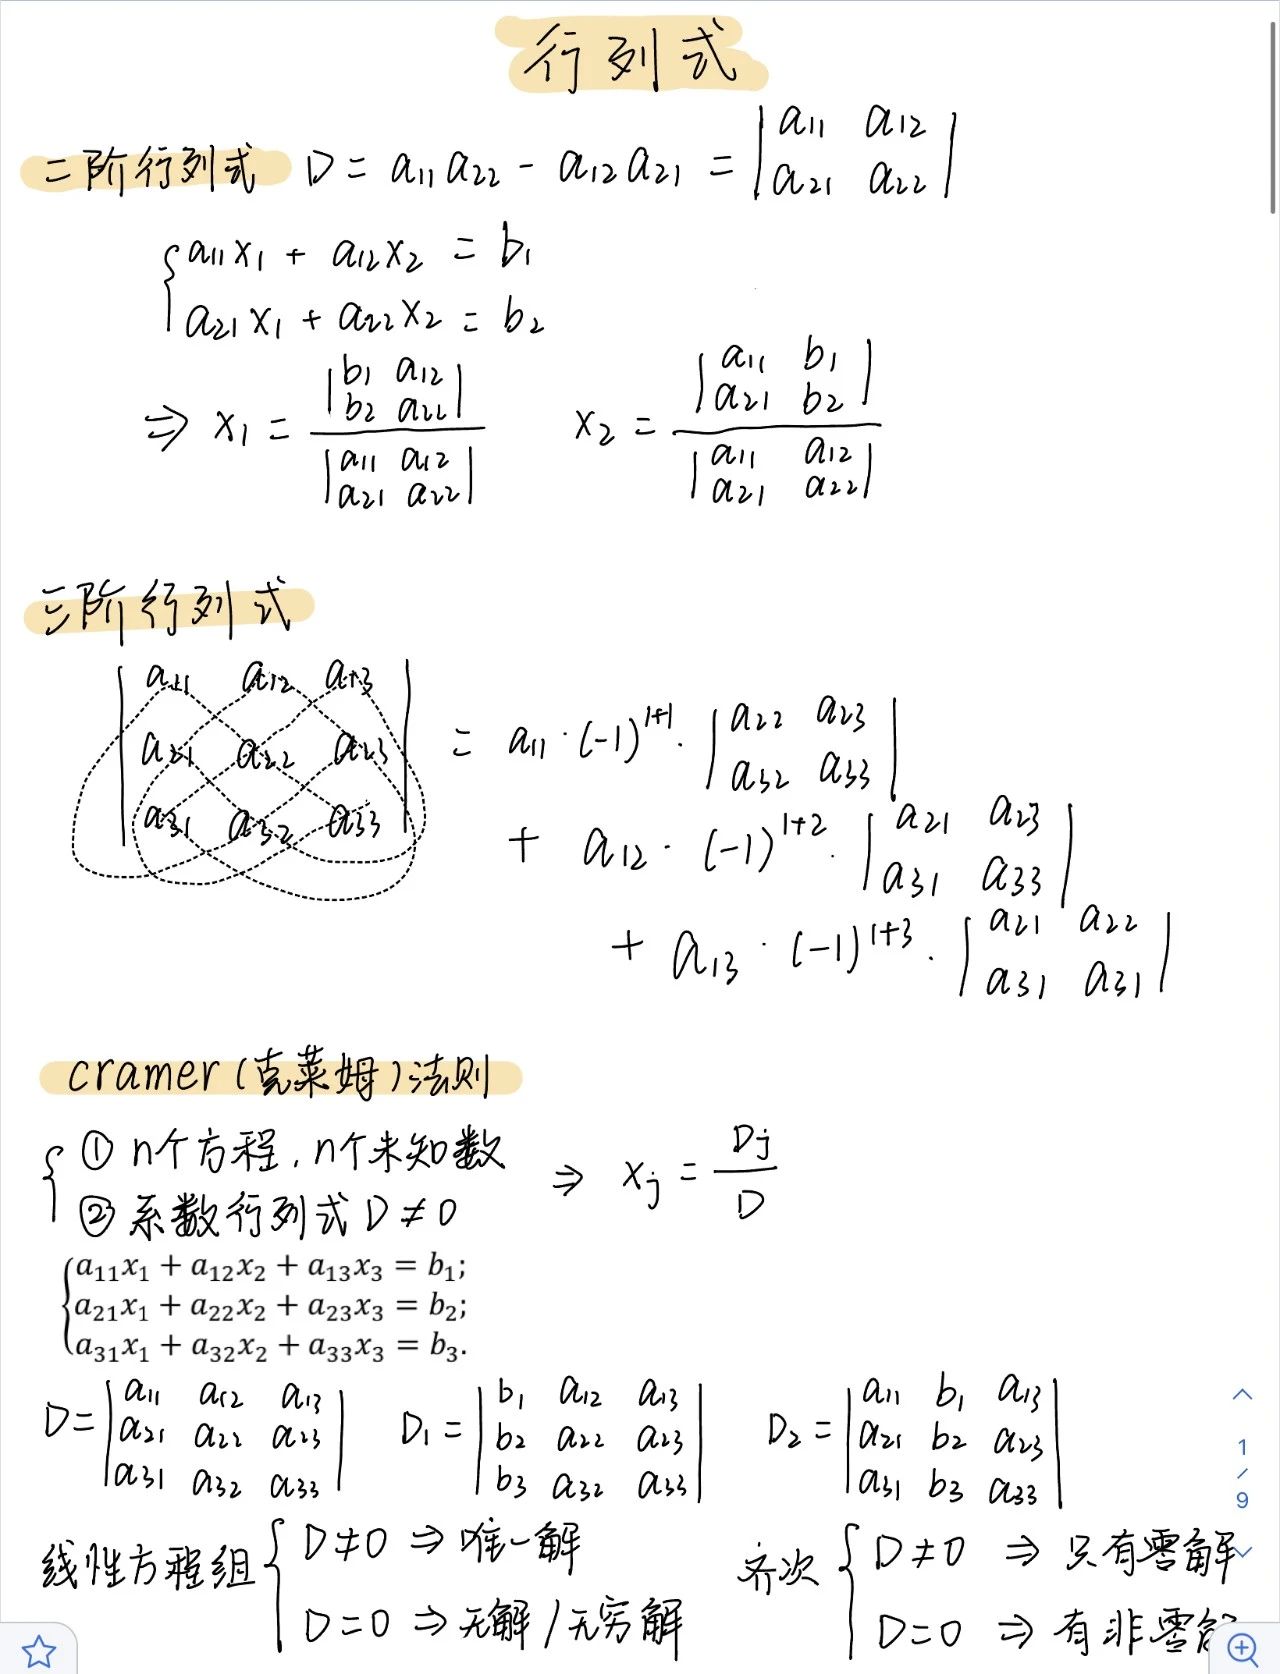 行列式
二阶行列式 D = a11 a22 - a12 a21 = | a11 a12
a21 a22 |
{ a11 x1 + a12 x2 = b1
a21 x1 + a22 x2 = b2
⇒ x1 = | b1 a12
b2 a22 |
/ | a11 a12
a21 a22 |
x2 = | a11 b1
a21 b2 |
/ | a11 a12
a21 a22 |
三阶行列式
| a11 a12 a13
a21 a22 a23
a31 a32 a33 |
= a11 · (-1)^1+1 · | a22 a23
a32 a33 |
+ a12 · (-1)^1+2 · | a21 a23
a31 a33 |
+ a13 · (-1)^1+3 · | a21 a22
a31 a31 |
cramer(克莱姆)法则
{ ① n个方程, n个未知数
② 系数行列式 D ≠ 0
⇒ xj = Dj / D
{ a11x1 + a12x2 + a13x3 = b1;
a21x1 + a22x2 + a23x3 = b2;
a31x1 + a32x2 + a33x3 = b3.
D = | a11 a12 a13
a21 a22 a23
a31 a32 a33 |
D1 = | b1 a12 a13
b2 a22 a23
b3 a32 a33 |
D2 = | a11 b1 a13
a21 b2 a23
a31 b3 a33 |
线性方程组 { D ≠ 0 ⇒ 唯一解
D = 0 ⇒ 无解 / 无穷解
齐次 { D ≠ 0 ⇒ 只有零解
D = 0 ⇒ 有非零
1
/
9